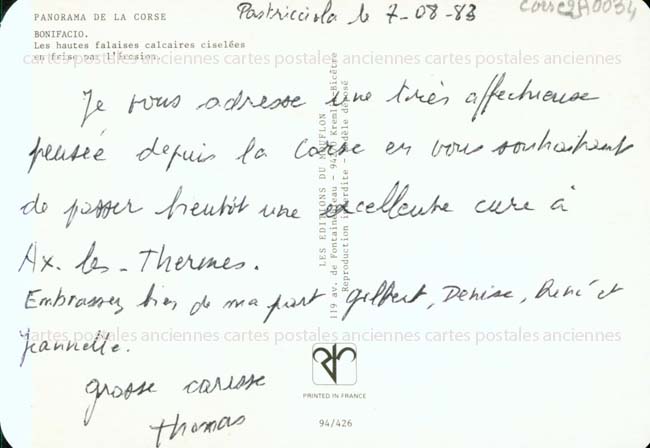 PANORAMA DE LA CORSE
BONIFACIO.
Les hautes falaises calcaires ciselées
en frise par l'érosion.
Pastricciola le 7-08-83
corse2A0034
cartes postales anciennes cartes postales anciennes cartes postales anciennes
Je vous adresse une très affectueuse
pensée depuis la Corse en vous souhaitant
de passer bientôt une excellente cure à
Ax-les-Thermes.
Embrassez bien de ma part Gilbert, Denise, René et
Jeannette.
cartes postales anciennes cartes postales anciennes cartes postales anciennes
grosse caresse
Thomas
LES EDITIONS DU MOUFLON
119 av. de Fontainebleau - 94270 Kremlin-Bicêtre
Reproduction interdite - Modèle déposé
PRINTED IN FRANCE
94/426